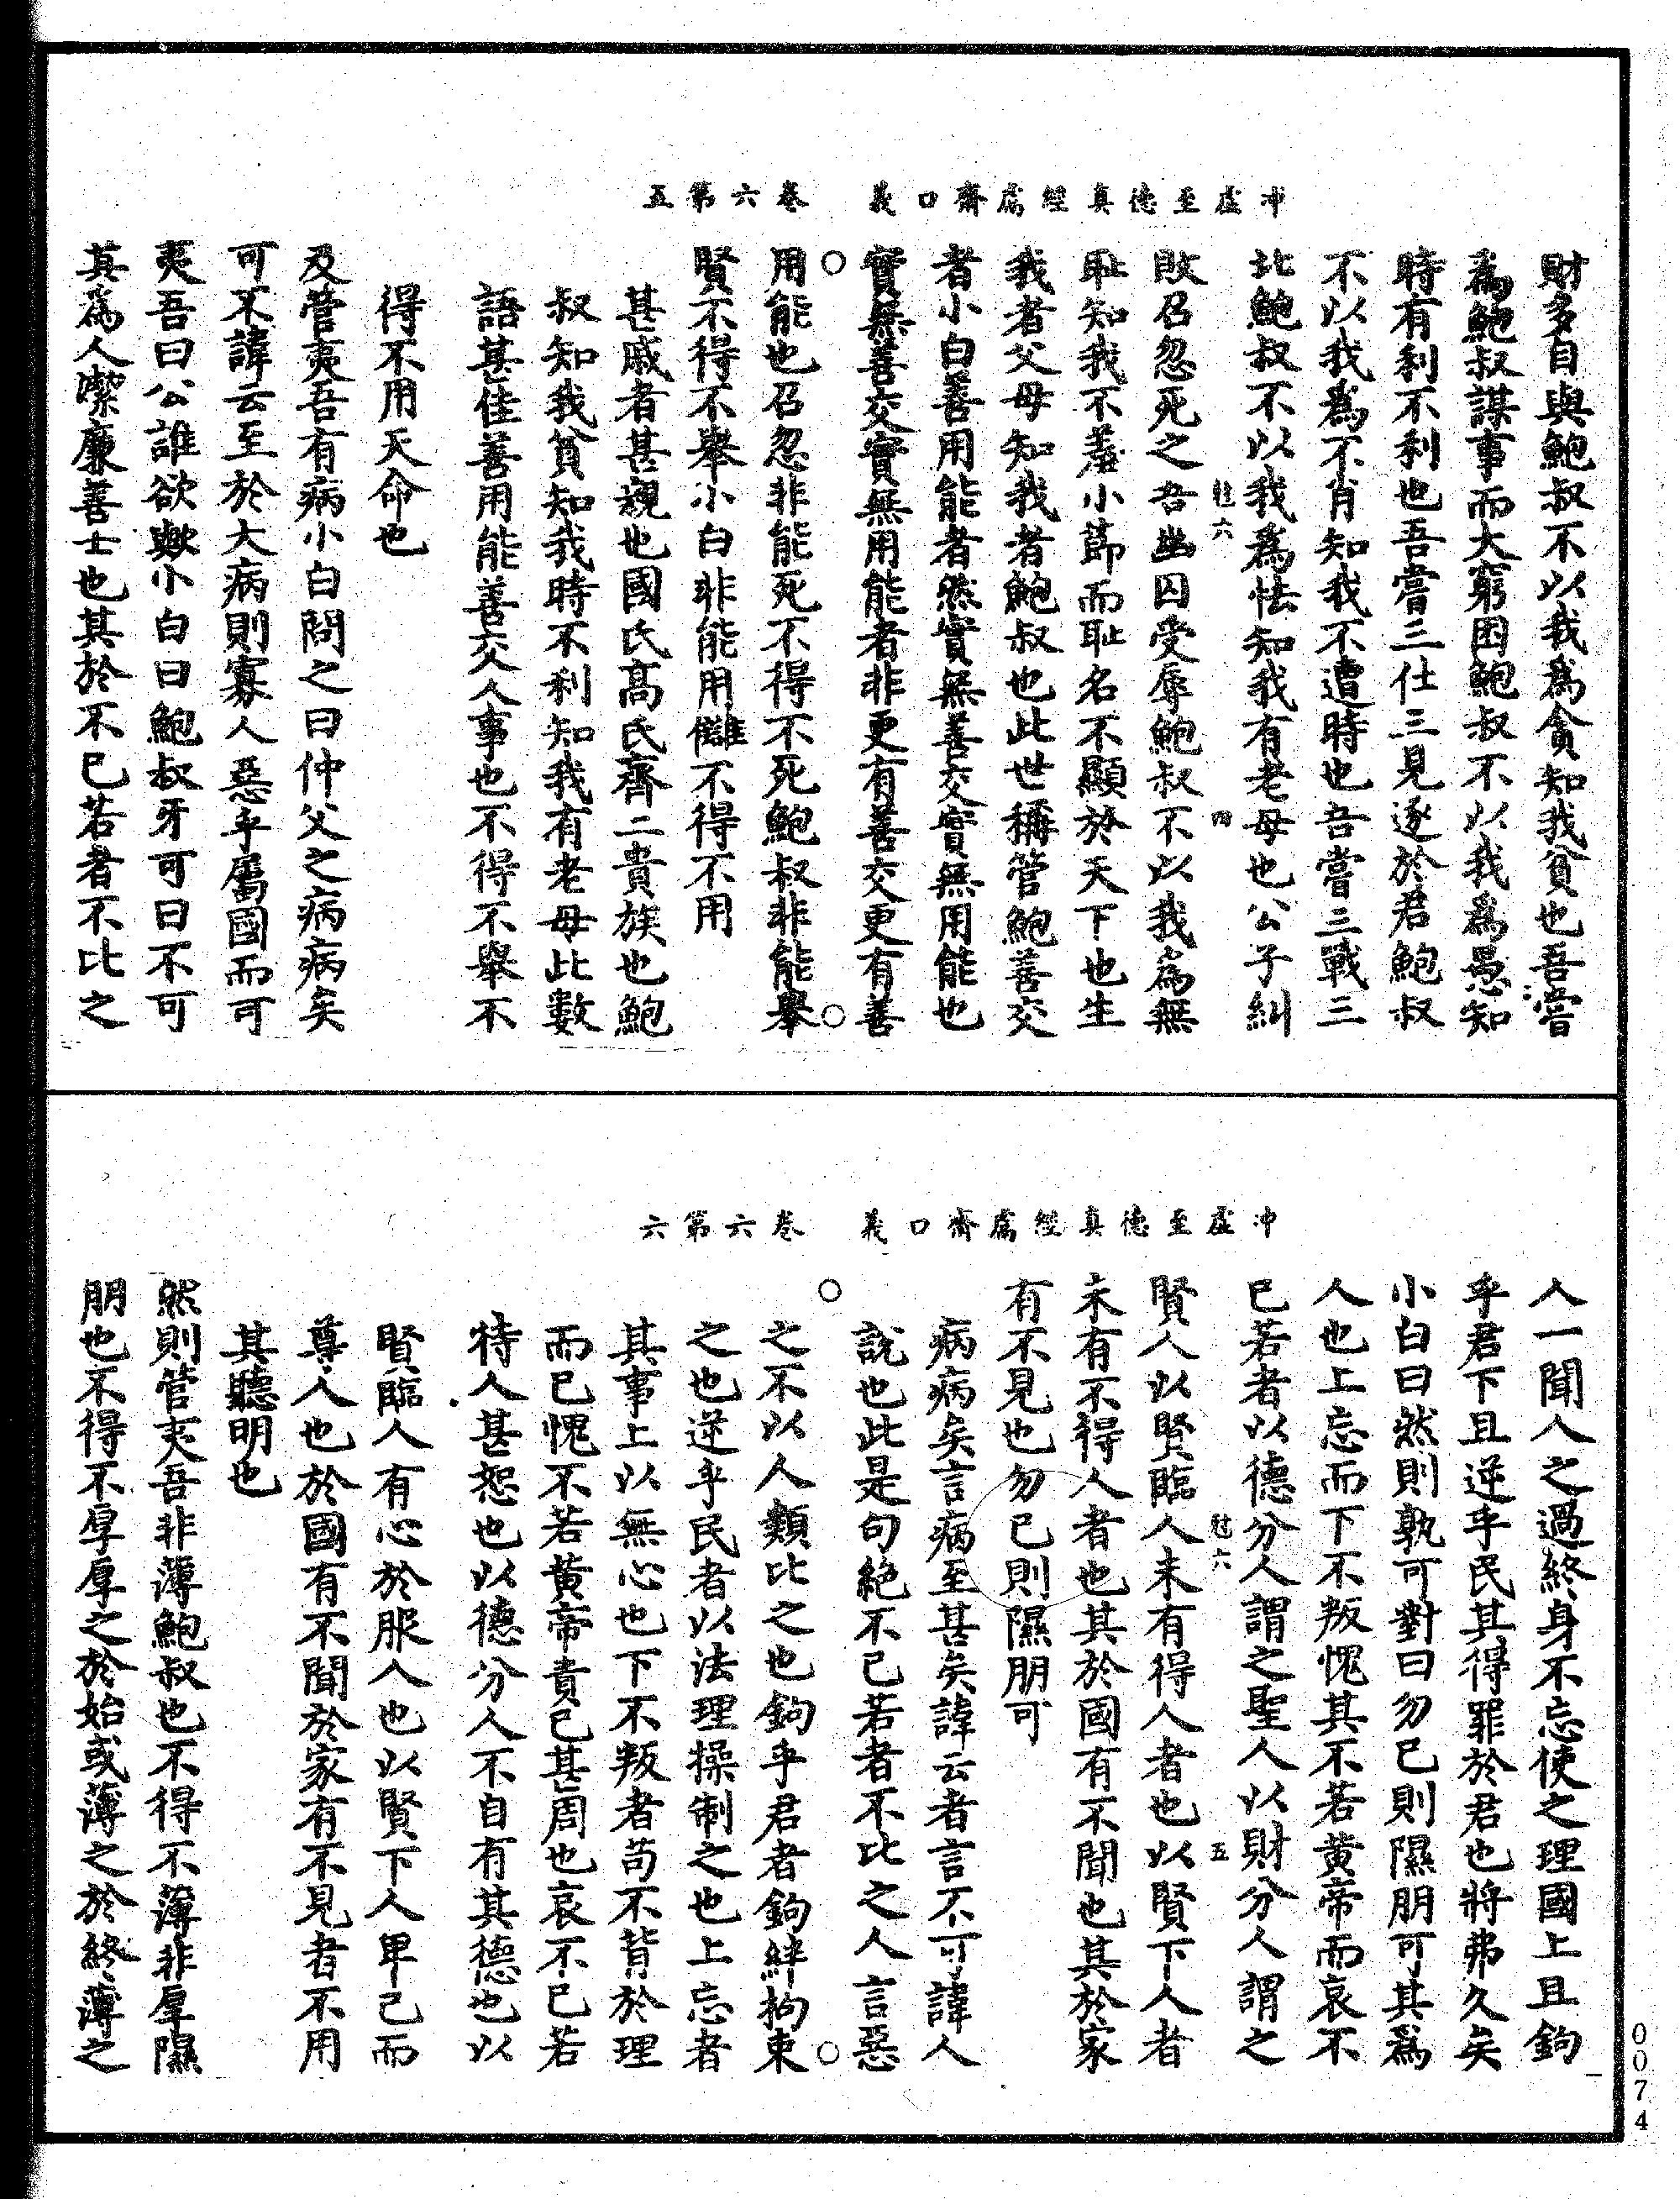 冲虛至德真經鬳齋口義　卷六第五
財多自與鮑叔不以我為貪知我貧也吾嘗
為鮑叔謀事而大窮困鮑叔不以我為愚知
時有利不利也吾嘗三仕三見逐於君鮑叔
不以我為不肖知我不遭時也吾嘗三戰三
北鮑叔不以我為怯知我有老母也公子糾
尅六　四
敗召忽死之吾幽囚受辱鮑叔不以我為無
恥知我不羞小節而恥名不顯於天下也生
我者父母知我者鮑叔也此世稱管鮑善交
者小白善用能者然實無善交實無用能也
實無善交實無用能者非更有善交更有善
用能也召忽非能死不得不死鮑叔非能舉
賢不得不舉小白非能用讎不得不用
甚戚者甚親也國氏高氏齊二貴族也鮑
叔知我貧知我時不利知我有老母此數
語甚佳善用能善交人事也不得不舉不
得不用天命也
及管夷吾有病小白問之曰仲父之病病矣
可不諱云至於大病則寡人惡乎屬國而可
夷吾曰公誰欲歟小白曰鮑叔牙可曰不可
其為人潔廉善士也其於不已若者不比之
冲虛至德真經鬳齋口義　卷六第六
人一聞人之過終身不忘使之理國上且鉤
乎君下且逆乎民其得罪於君也將弗久矣
小白曰然則孰可對曰勿已則隰朋可其為
人也上忘而下不叛愧其不若黃帝而哀不
已若者以德分人謂之聖人以財分人謂之
尅六　五
賢人以賢臨人未有得人者也以賢下人者
未有不得人者也其於國有不聞也其於家
有不見也勿已則隰朋可
病病矣言病至甚矣諱云者言不可諱人
說也此是句絕不已若者不比之人言惡
之不以人類比之也鉤乎君者鉤絆拘束
之也逆乎民者以法理操制之也上忘者
其事上以無心也下不叛者苟不背於理
而已愧不若黃帝責己甚周也哀不已若
待人甚恕也以德分人不自有其德也以
賢臨人有心於服人也以賢下人卑己而
尊人也於國有不聞於家有不見者不用
其聽明也
然則管夷吾非薄鮑叔也不得不薄非厚隰
朋也不得不厚厚之於始或薄之於終薄之
0074